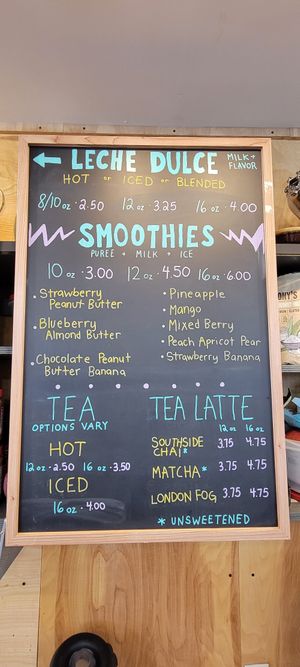 ← LECHE DULCE MILK + FLAVOR
HOT or ICED or BLENDED
8/10 oz · 2.50 12 oz · 3.25 16 oz · 4.00
SMOOTHIES
PUREE + MILK + ICE
10 oz · 3.00 12 oz · 4.50 16 oz · 6.00
· Strawberry Peanut Butter
· Blueberry Almond Butter
· Chocolate Peanut Butter Banana
· Pineapple
· Mango
· Mixed Berry
· Peach Apricot Pear
· Strawberry Banana
TEA
OPTIONS VARY
HOT
12 oz · 2.50 16 oz · 3.50
ICED
16 oz · 4.00
TEA LATTE
12 oz 16 oz
SOUTHSIDE CHAI* 3.75 4.75
MATCHA* 3.75 4.75
LONDON FOG 3.75 4.75
* UNSWEETENED